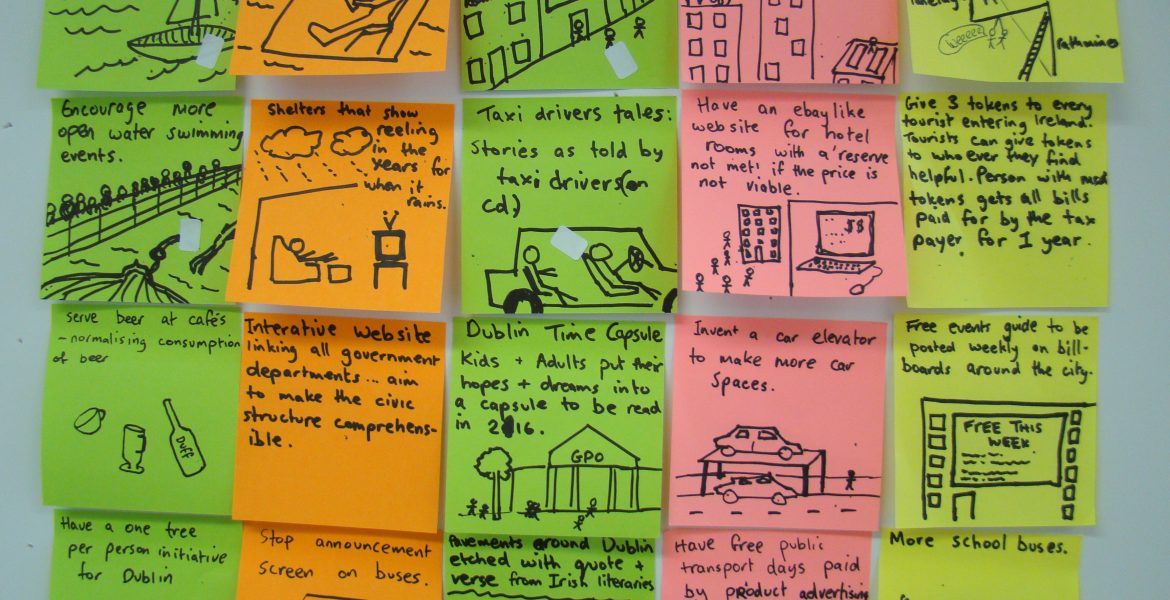 Rathmines
Encourage more
open water swimming
events.
Shelters that show
reeling
in the
years for
when it
rains.
Taxi drivers tales:
Stories as told by
taxi drivers (on
cd)
Have an ebay like
website for hotel
rooms with a 'reserve
not met' if the price is
not viable.
$$
Give 3 tokens to every
tourist entering Ireland.
Tourists can give tokens
to who ever they find
helpful. Person with most
tokens gets all bills
paid for by the tax
payer for 1 year.
Serve beer at cafés
- normalising consumption
of beer
Duff
Interative website
linking all government
departments... aim
to make the civic
structure comprehens-
ible.
Dublin Time Capsule
Kids + Adults put their
hopes + dreams into
a capsule to be read
in 2016.
GPO
Invent a car elevator
to make more car
Spaces.
Free events guide to be
posted weekly on bill-
boards around the city.
FREE THIS
WEEK
Have a one tree
per person initiative
for Dublin
Stop announcement
screen on buses.
Pavements around Dublin
etched with quote +
verse from Irish literaries
Have free public
transport days paid
by product advertising
More school buses.